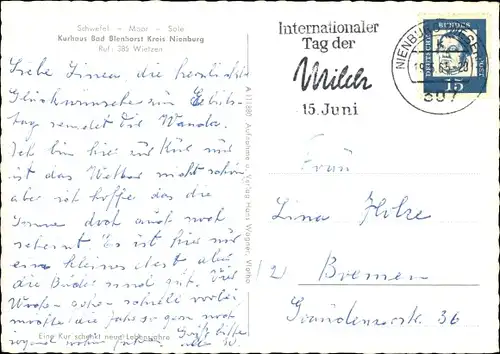 Schwefel – Moor – Sole
Kurhaus Bad Blenhorst Kreis Nienburg
Ruf: 385 Wietzen
Liebe Lina, die herzlichsten
Glückwünsche zum Geburts-
tag sendet die Wanda.
Ich bin hier zur Kur nur
ist das Wetter nicht schön
aber ich hoffe das die
Sonne doch auch noch
scheint. Es ist hier nur
ein kleines aber
die Bäder sind gut. Vier
Wochen gehen schnell vorbei
möchte die gern noch
Eine Kur schenkt neue Lebensjahre
A 111/887 Aufnahme u. Verlag Hans Wagner, Vlotho
Internationaler
Tag der
Milch
15. Juni
NIENBURG
307
DEUTSCHE BUNDESPOST
15
Frau
Lina Holze
2 Bremen
Graudenzerstr. 36